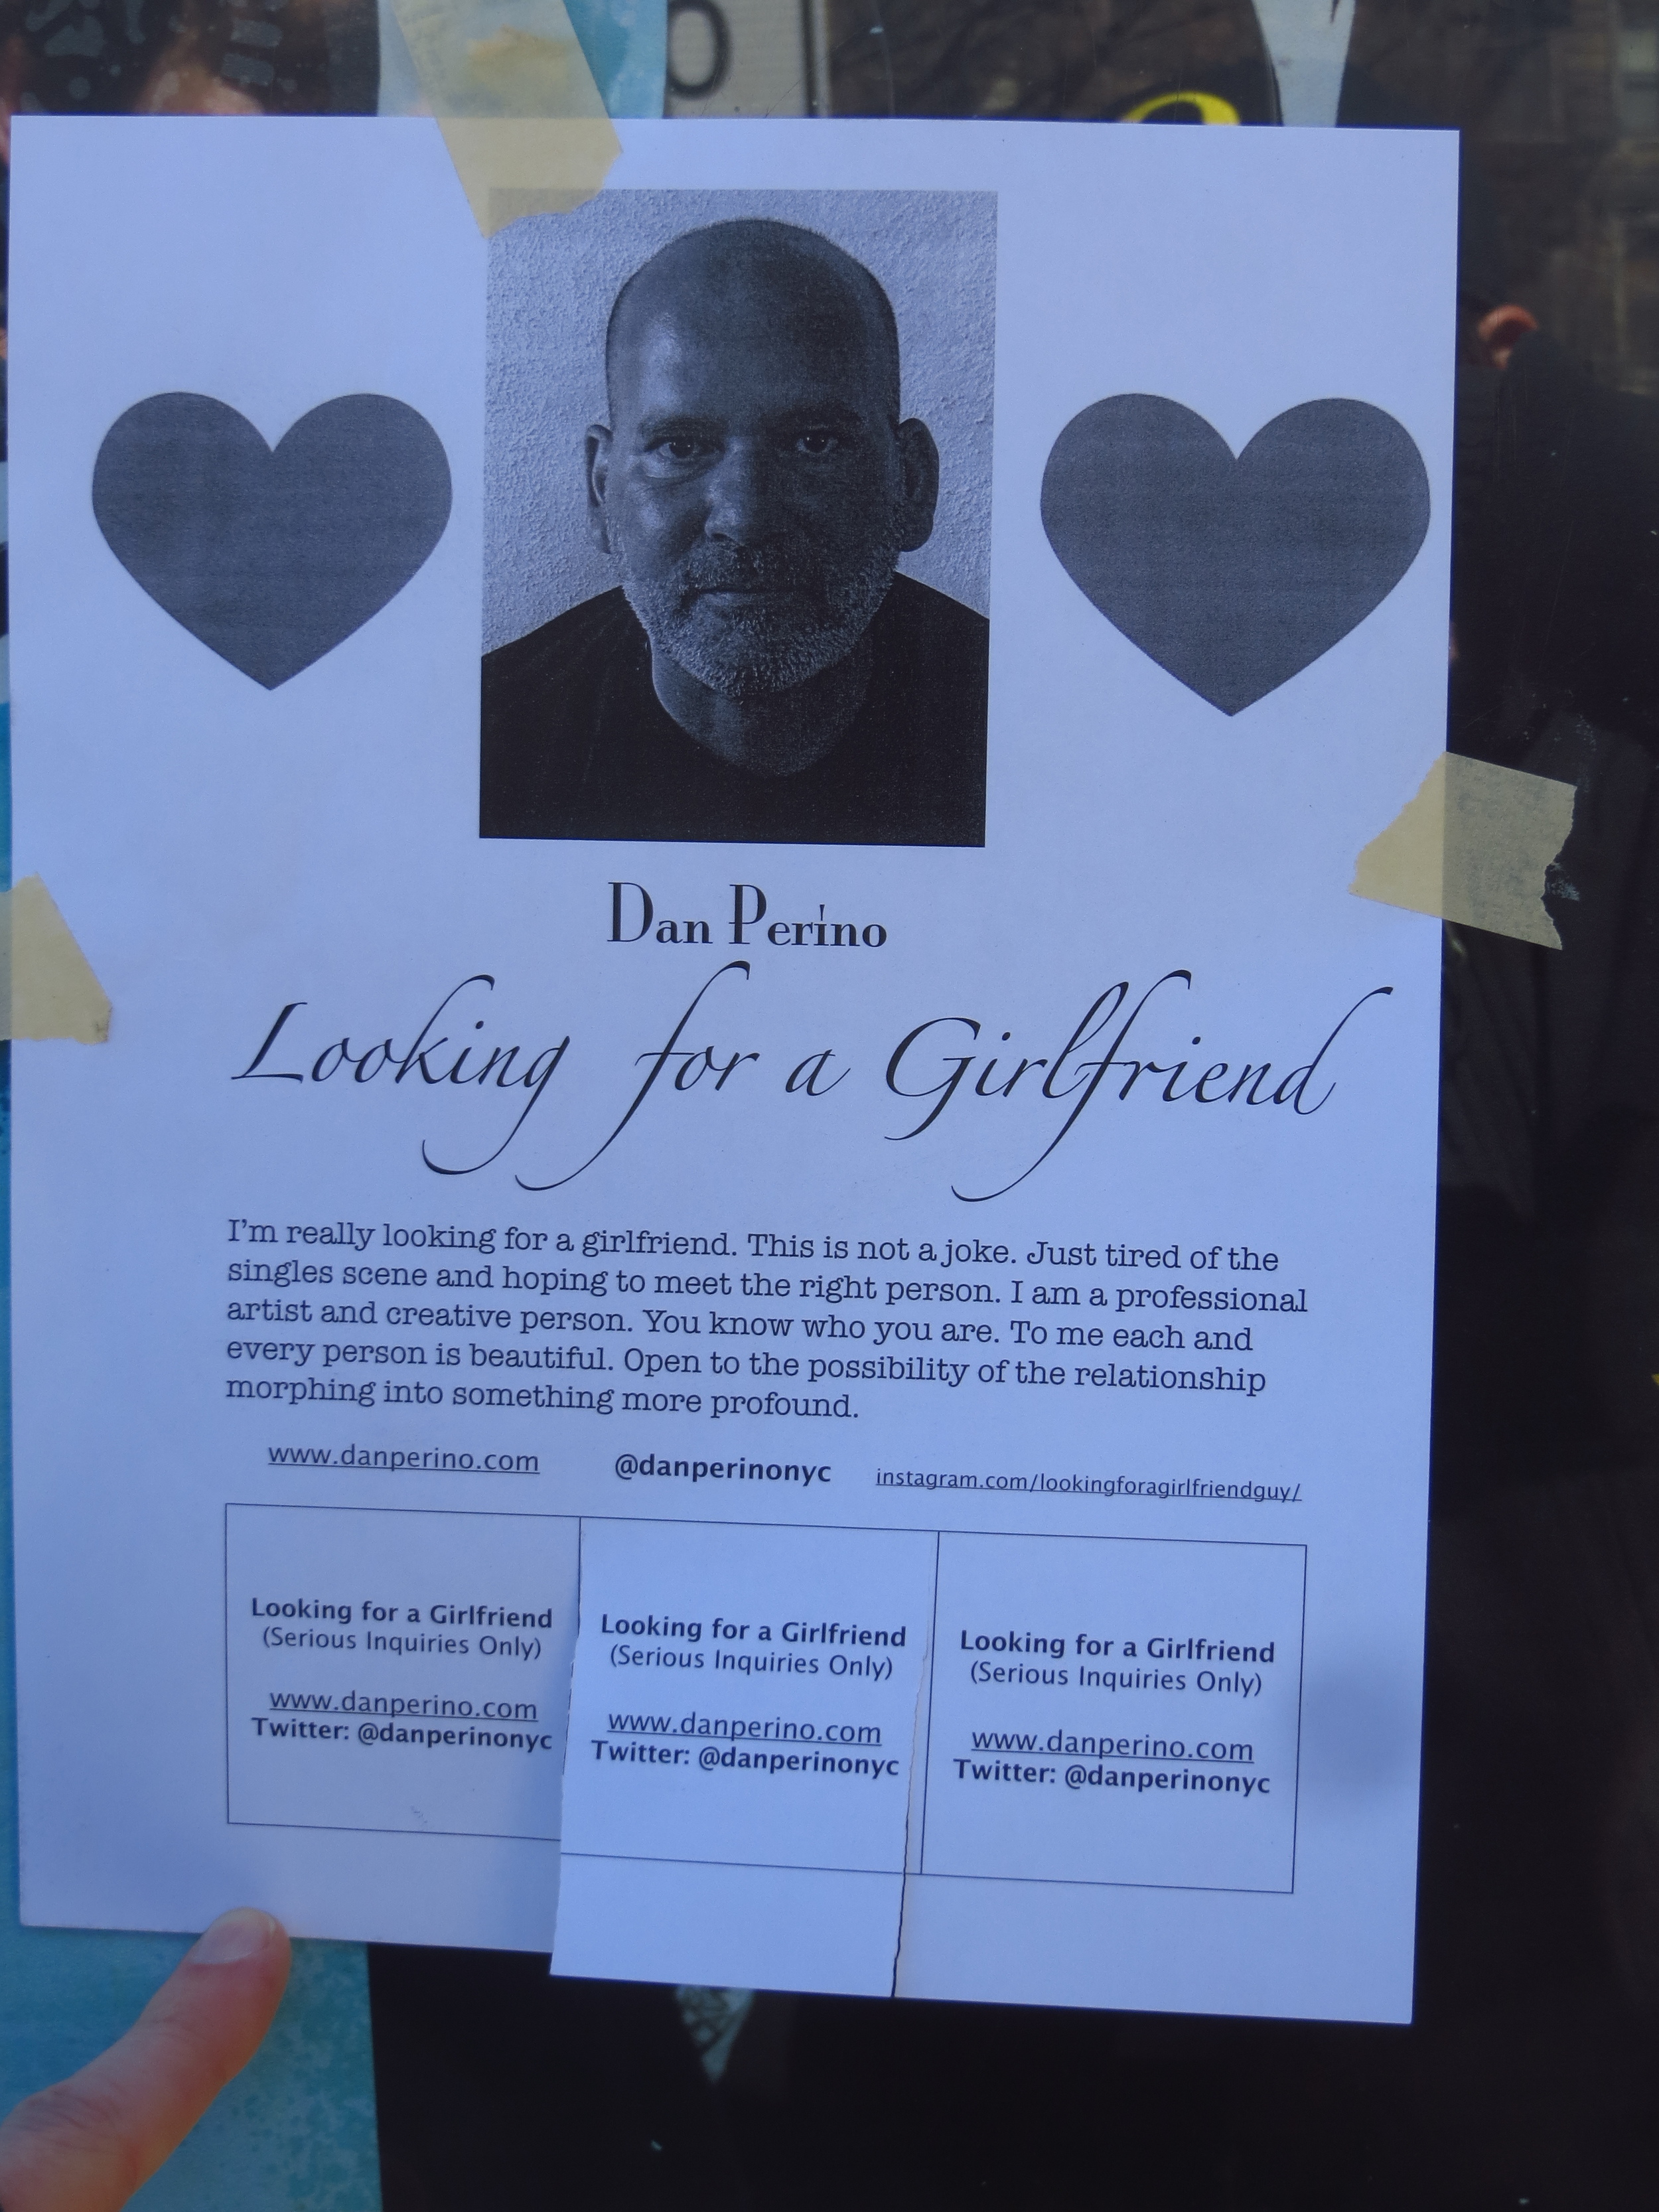 Dan Perino
Looking for a Girlfriend
I'm really looking for a girlfriend. This is not a joke. Just tired of the
singles scene and hoping to meet the right person. I am a professional
artist and creative person. You know who you are. To me each and
every person is beautiful. Open to the possibility of the relationship
morphing into something more profound.
www.danperino.com @danperinonyc instagram.com/lookingforagirlfriendguy/
Looking for a Girlfriend
(Serious Inquiries Only)
www.danperino.com
Twitter: @danperinonyc
Looking for a Girlfriend
(Serious Inquiries Only)
www.danperino.com
Twitter: @danperinonyc
Looking for a Girlfriend
(Serious Inquiries Only)
www.danperino.com
Twitter: @danperinonyc